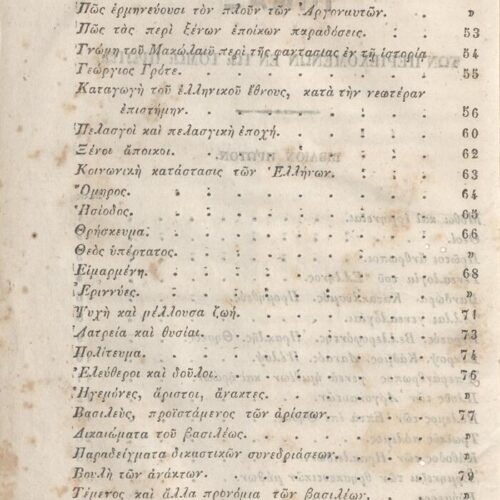 Πῶς ἑρμηνεύουσι τὸν πλοῦν τῶν Ἀργοναυτῶν. »
Πῶς τὰς περὶ ξένων ἐποίκων παραδόσεις. : 53
Γνώμη τοῦ Μακώλαϋ περὶ τῆς φαντασίας ἐν τῇ ἱστορίᾳ 54
Γεώργιος Γρότε. 55
Καταγωγὴ τοῦ ἑλληνικοῦ ἔθνους, κατὰ τὴν νεωτέραν
ἐπιστήμην. 56
Πελασγοὶ καὶ πελασγικὴ ἐποχή. 60
Ξένοι ἄποικοι. 62
Κοινωνικὴ κατάστασις τῶν Ἑλλήνων. 63
Ὅμηρος. 64
Ἡσίοδος. 65
Θρήσκευμα. 66
Θεὸς ὑπέρτατος. »
Εἱμαρμένη. 68
Ἐριννύες. »
Ψυχὴ καὶ μέλλουσα ζωή. 71
Λατρεία καὶ θυσίαι. 73
Πολίτευμα. 74
Ἐλεύθεροι καὶ δοῦλοι. 76
Ἡγεμόνες, ἄριστοι, ἄνακτες. »
Βασιλεὺς, προϊστάμενος τῶν ἀρίστων. 77
Δικαιώματα τοῦ βασιλέως. »
Παραδείγματα δικαστικῶν συνεδριάσεων. »
Βουλὴ τῶν ἀνάκτων. 79
Τέμενος καὶ ἄλλα προνόμια τῶν βασιλέων. »